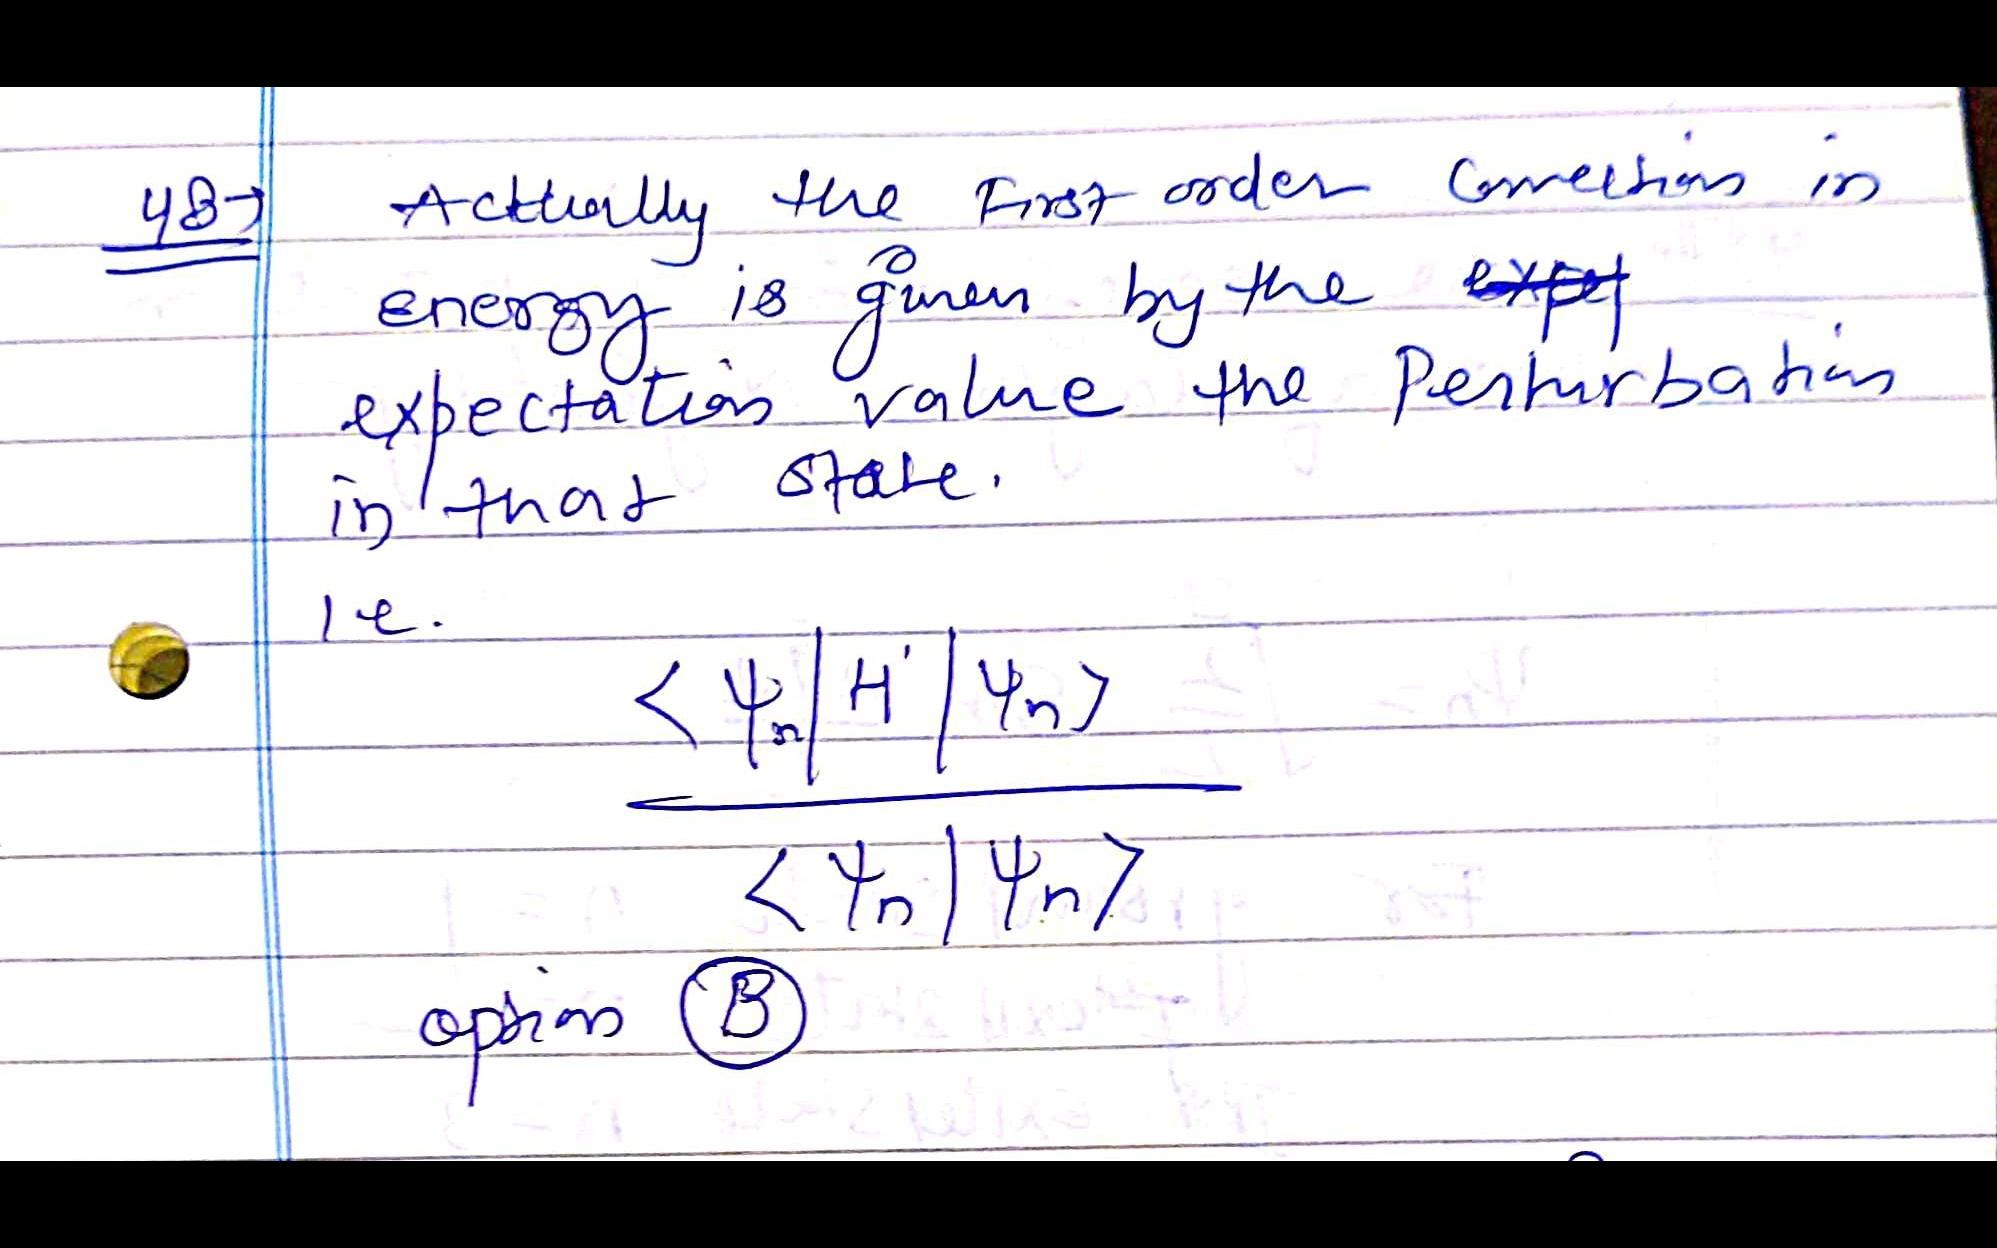 48→ Acttually the First order Correction in
energy is given by the expet
expectation value the Perturbation
in that state.
ie.
<ψn|H'|ψn>
<ψn|ψn>
option B